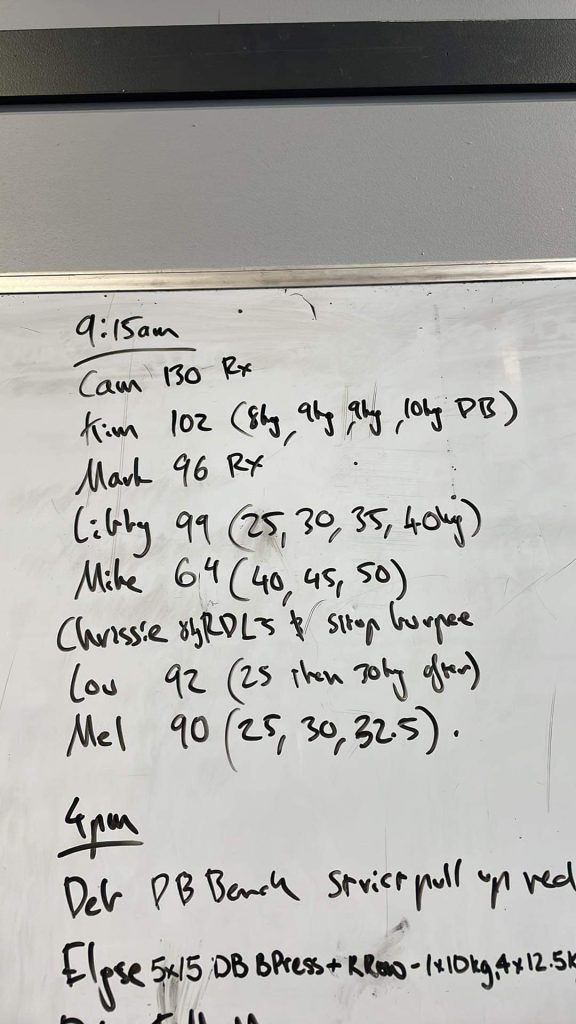 9:15am
Cam 130 Rx
Kim 102 (8kg, 9kg, 9kg, 10kg DB)
Mark 96 Rx
Libby 99 (25, 30, 35, 40kg)
Mike 64 (40, 45, 50)
Chrissie 8kg RDLs & step burpee
Lou 92 (25 then 30kg after)
Mel 90 (25, 30, 32.5).
4pm
Deb DB Bench strict pull up red
Elyse 5x15 DB BPress + R Row - 1x10kg, 4x12.5k